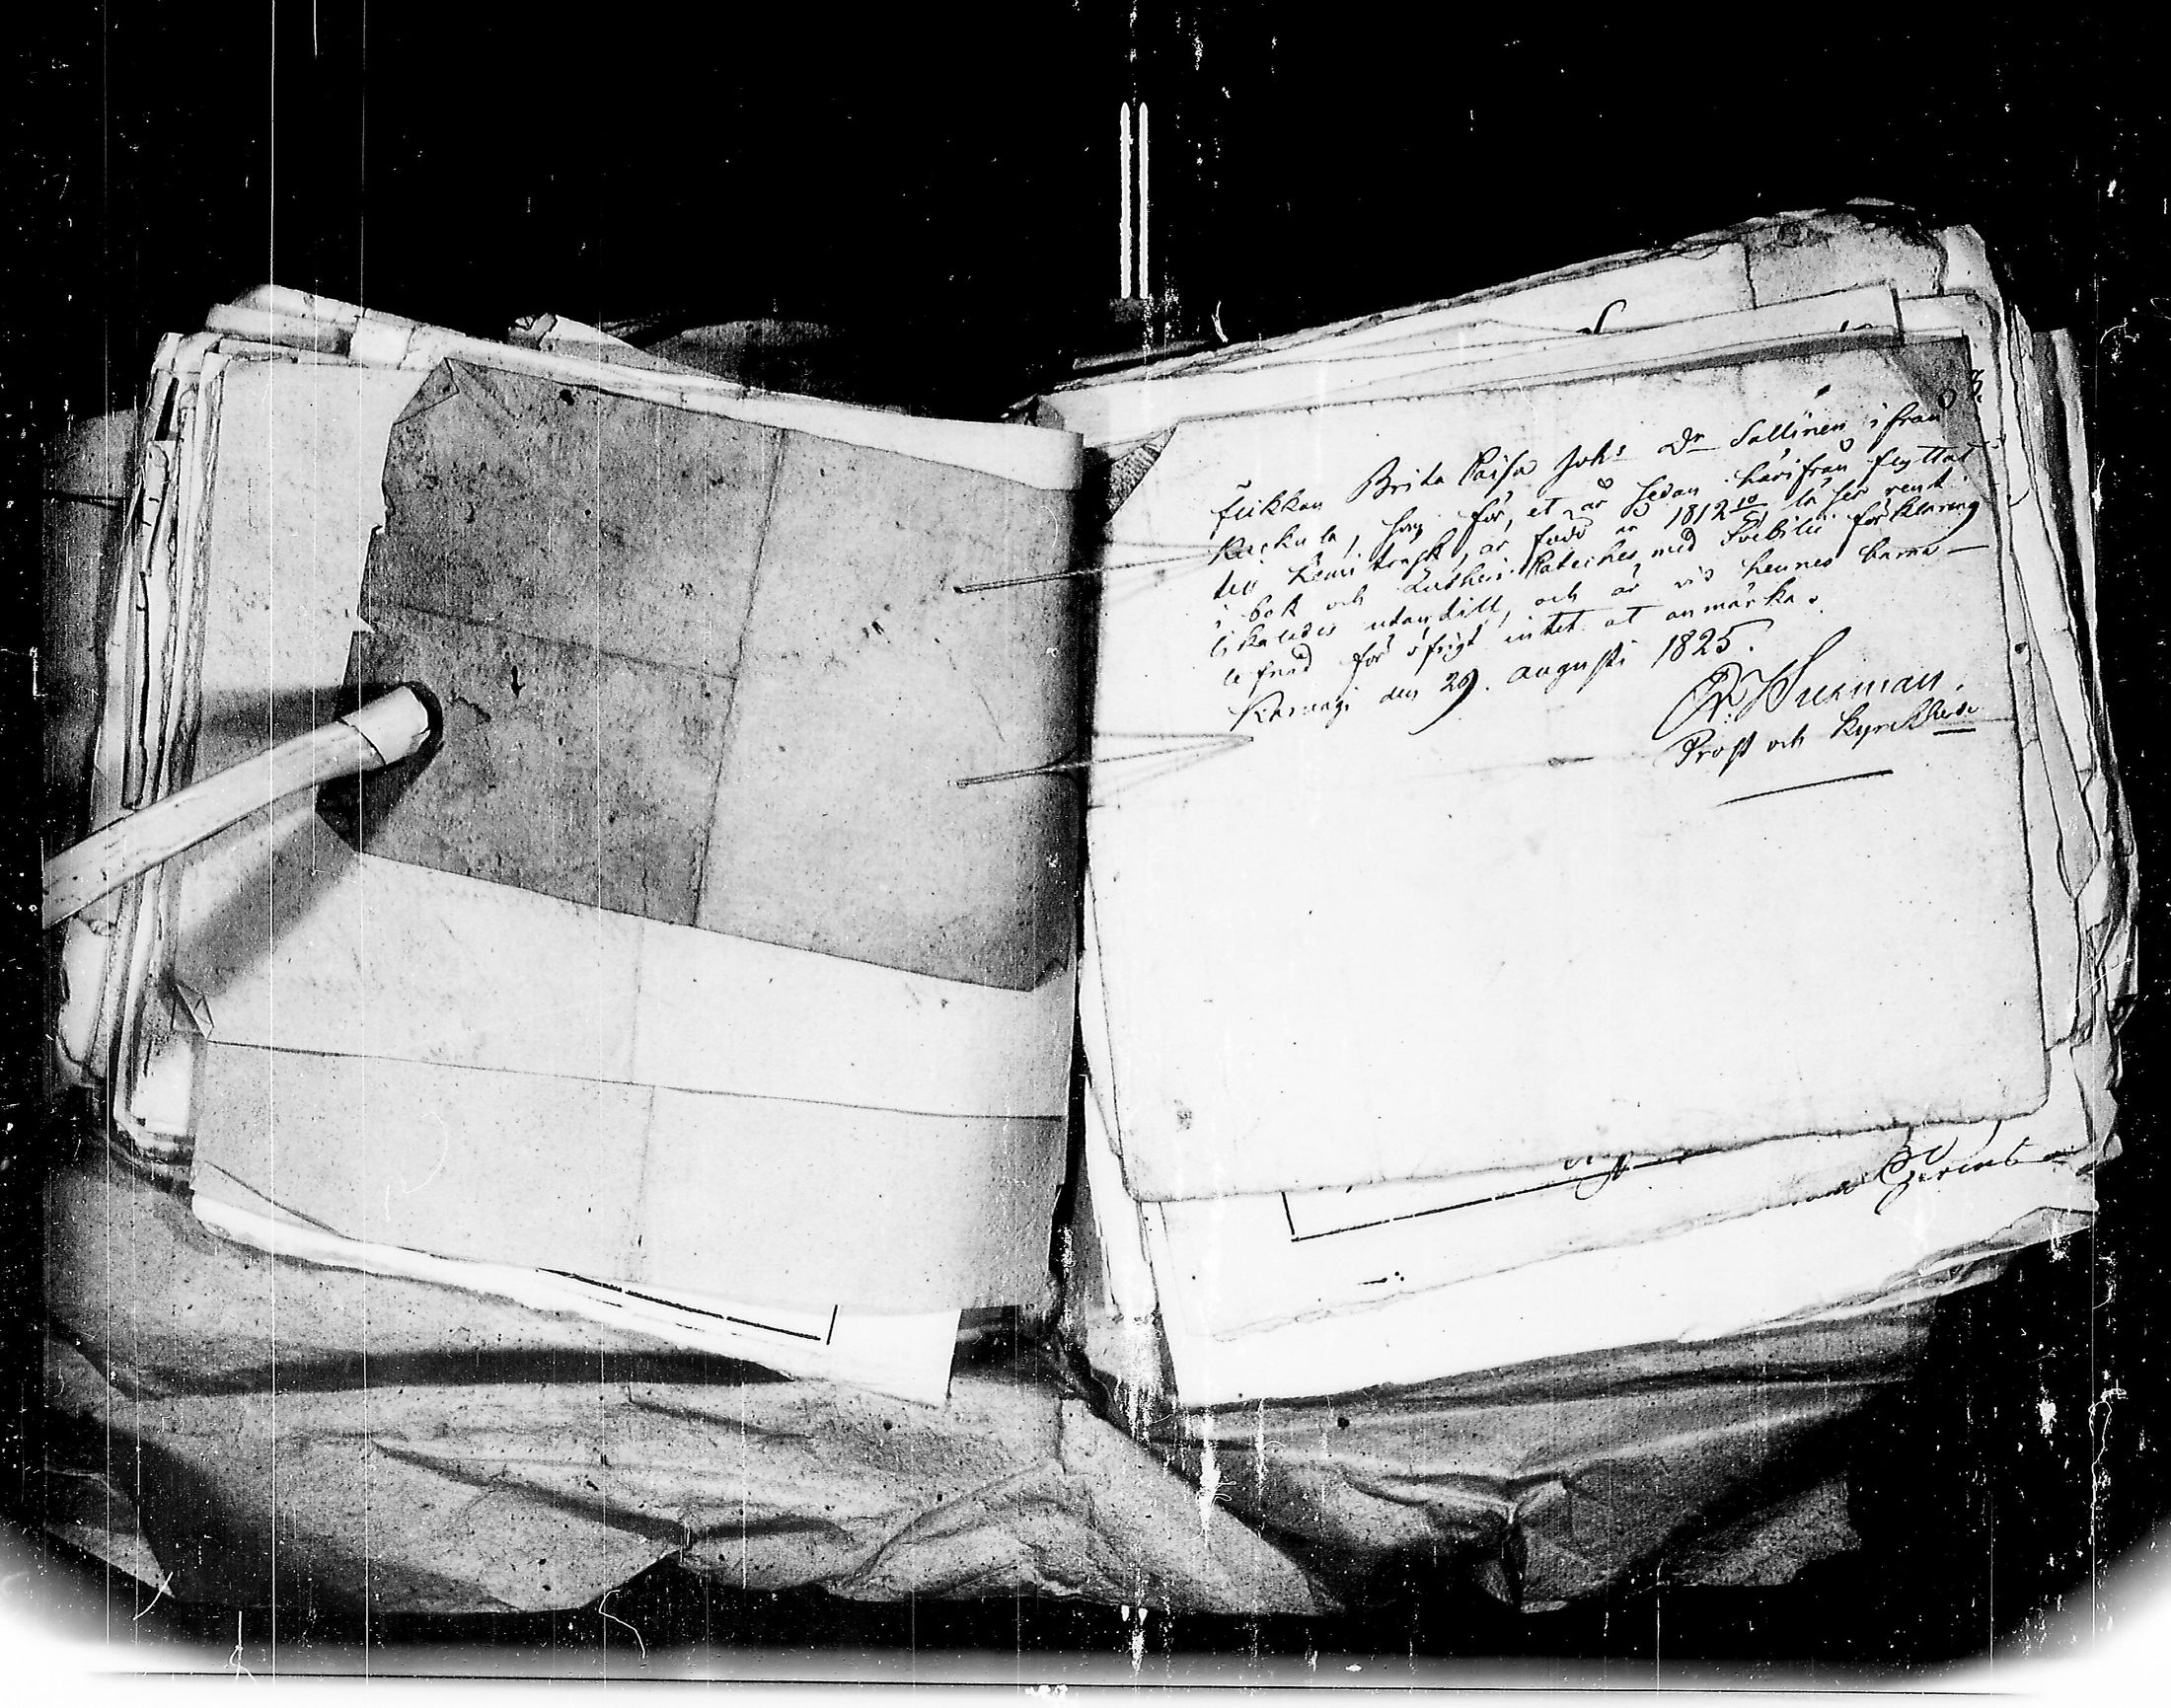 Flickan Brita Caisa Johs Dr Sallinen ifrån
Kuckula, som för et år sedan härifrån flyttat
till Kemi träsk, är född år 1812 10/5, läser rent
i bok och Lutheri Cateches, med Svebilii förklaring
likaledes utantill, och är vid hennes barna-
lefnad för öfrigt intet at anmärka.
Karungi den 29. augusti 1825.
Wm
Prost och Kyrckherde